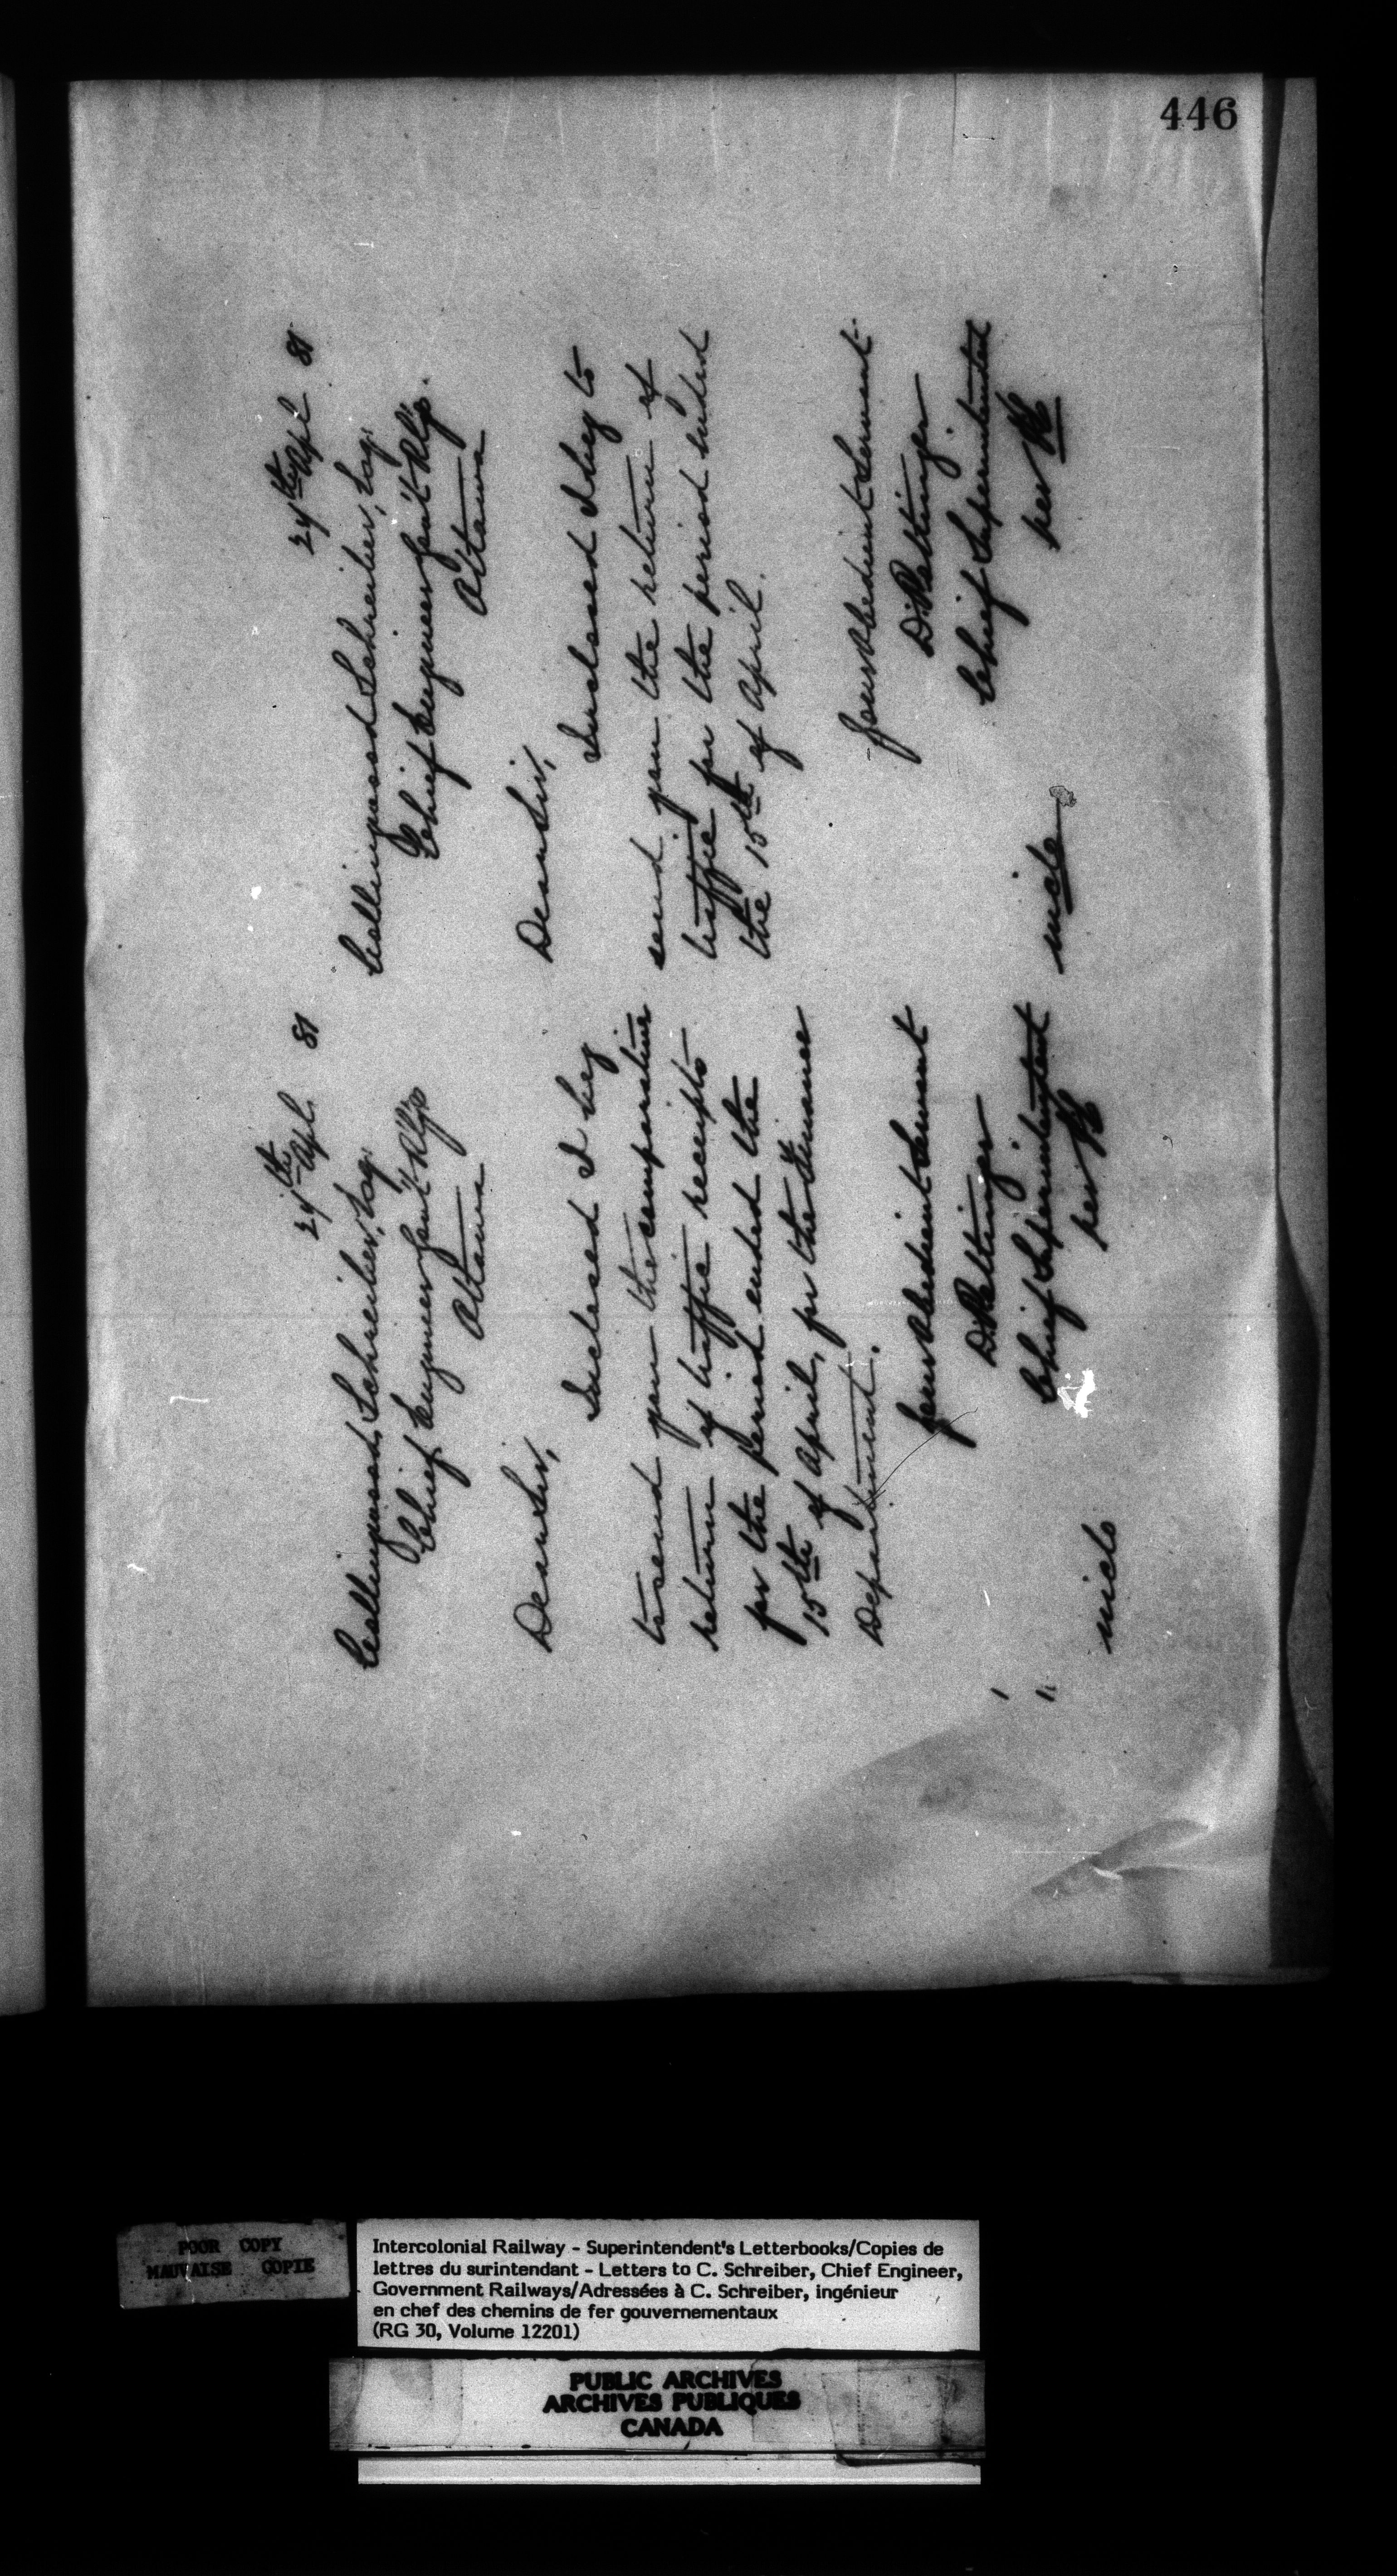 446
24th Apl. 81
Collingwood Schreiber, Esq.
Chief Engineer Govt Rlys
Ottawa
Dear Sir,
Inclosed I beg
to send you the comparative
return of traffic receipts
for the period ended the
15th of April, for the Finance
Department.
Your obedient servant
D. Pottinger
Chief Superintendent
per
incls
24th Apl 81
Collingwood Schreiber, Esq.
Chief Engineer Govt Rlys.
Ottawa
Dear Sir,
Inclosed I beg to
send you the return of
traffic for the period ended
the 15th of April.
Your obedient servant
D. Pottinger.
Chief Superintendent
per
incls
POOR COPY
MAUVAISE COPIE
Intercolonial Railway - Superintendent's Letterbooks/Copies de
lettres du surintendant - Letters to C. Schreiber, Chief Engineer,
Government Railways/Adressées à C. Schreiber, ingénieur
en chef des chemins de fer gouvernementaux
(RG 30, Volume 12201)
PUBLIC ARCHIVES
ARCHIVES PUBLIQUES
CANADA